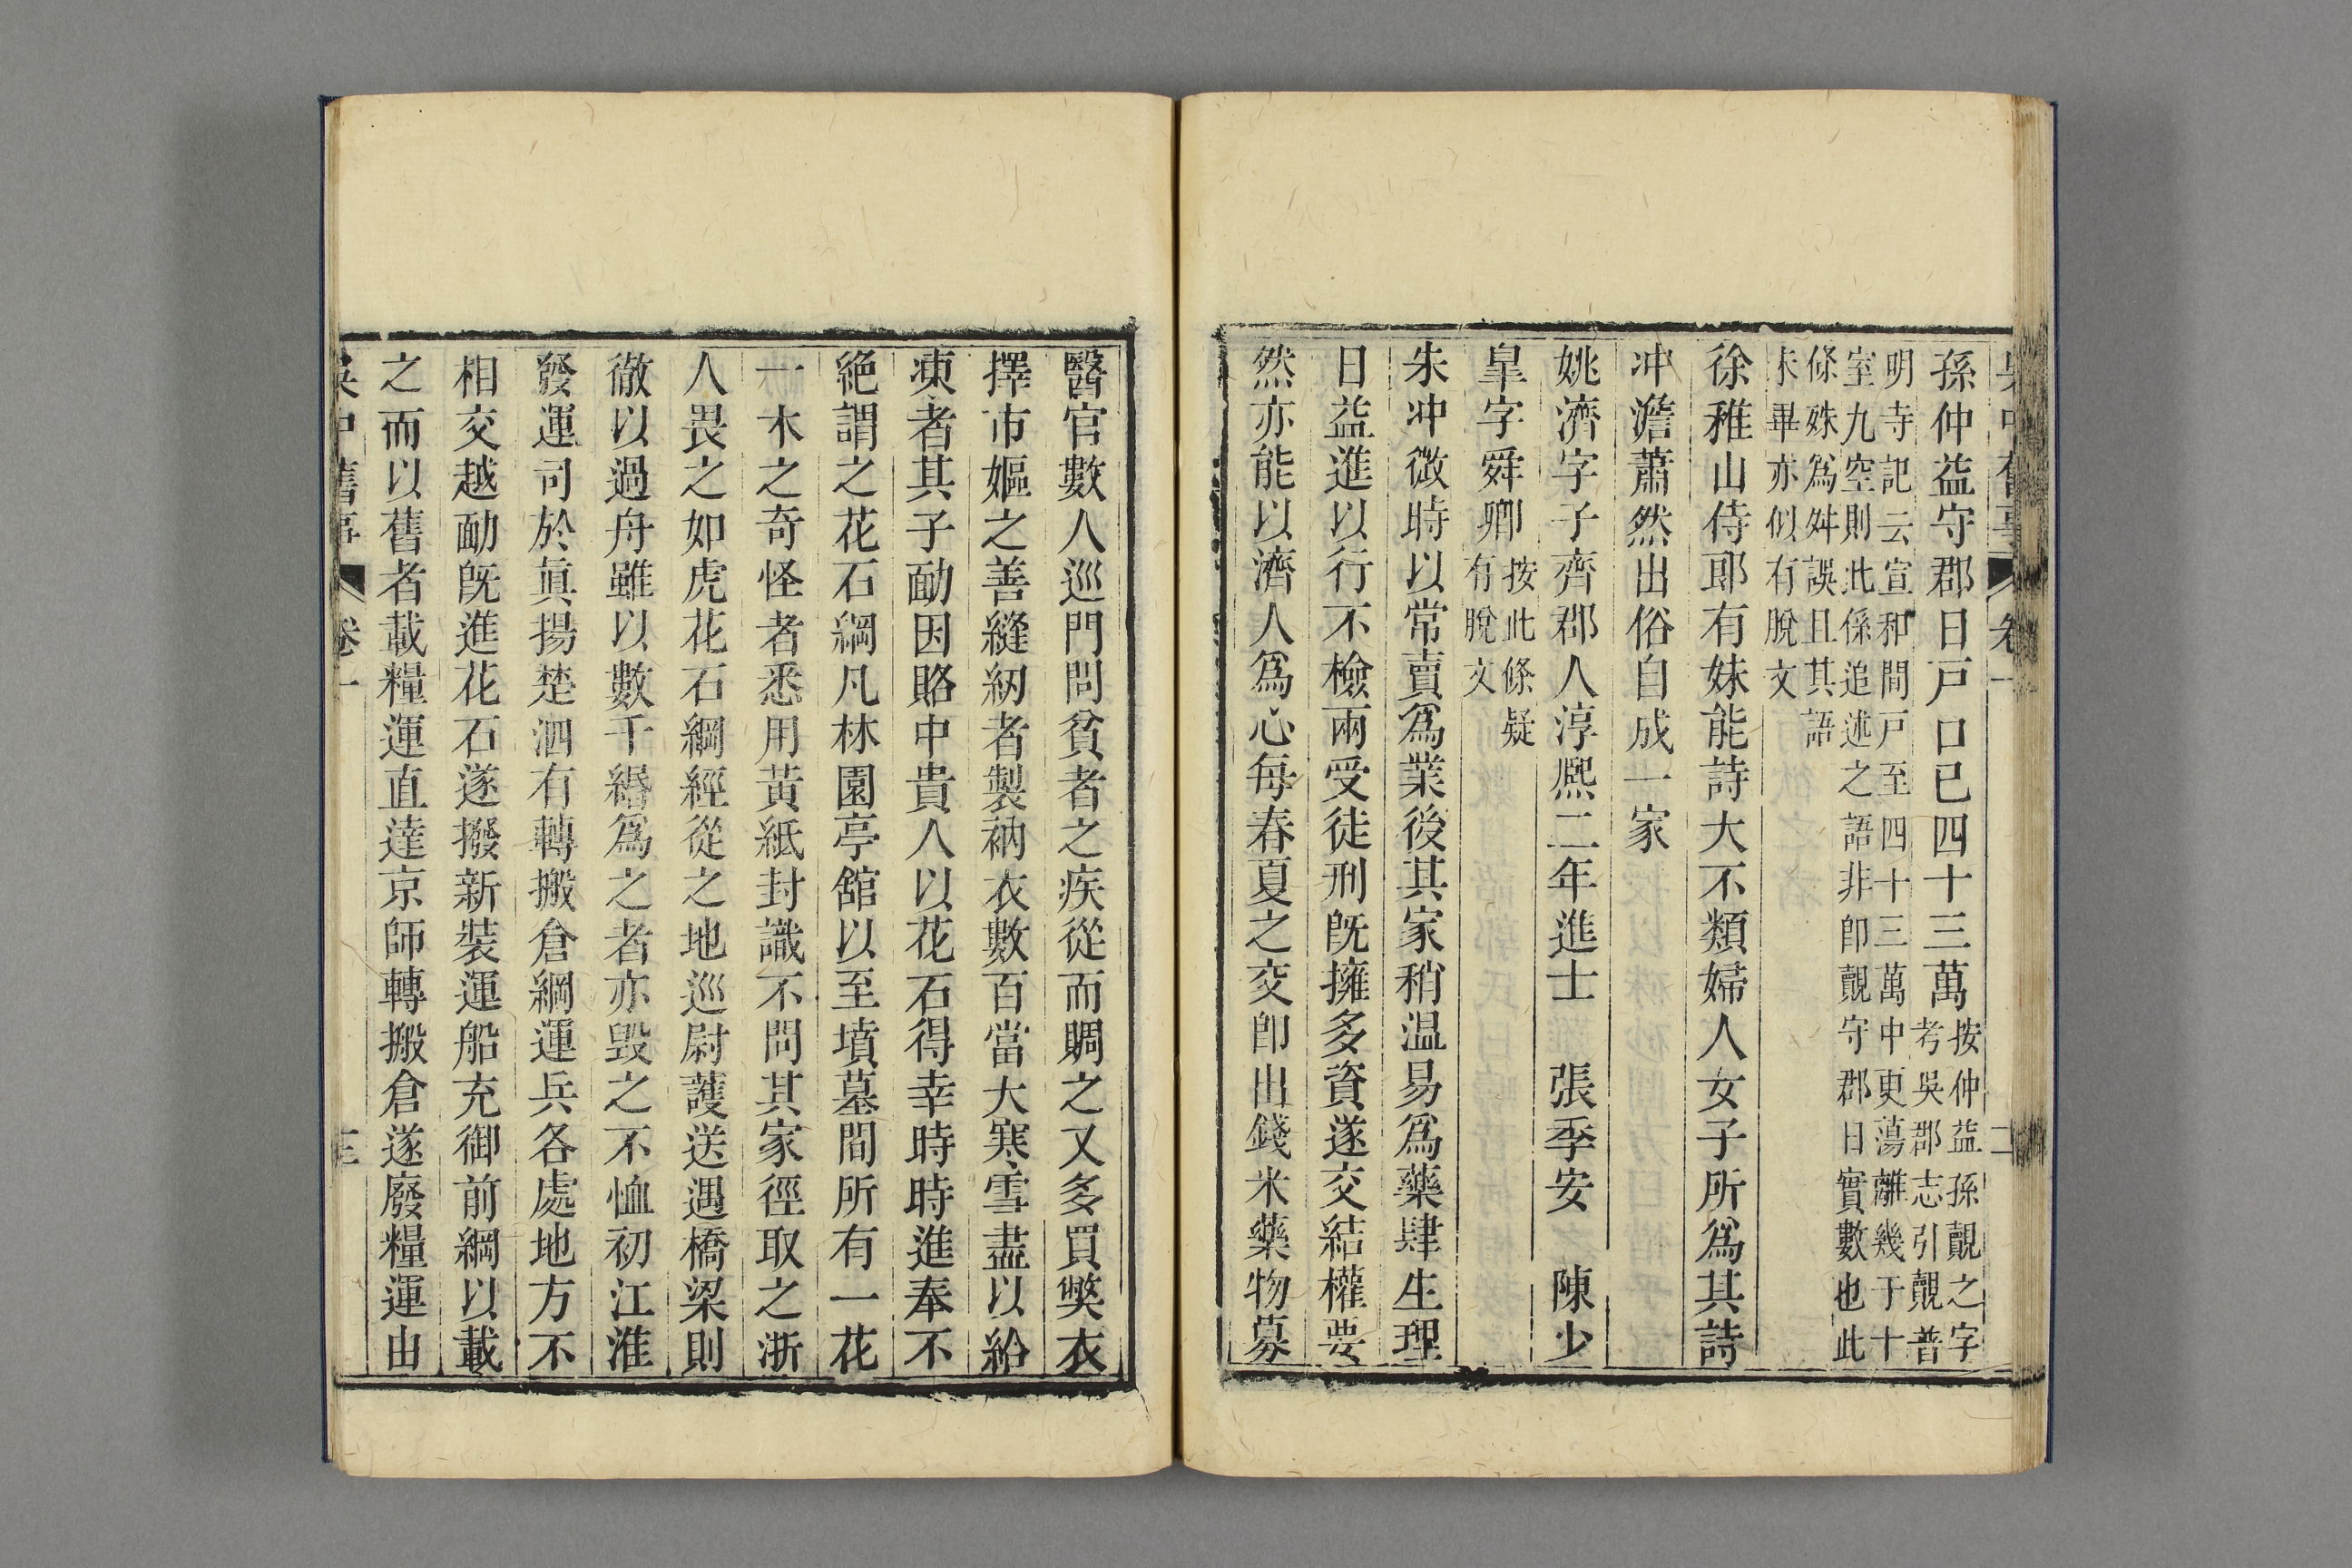 吳中舊事 卷一 二
孫仲益守郡日戸口已四十三萬按仲益孫覿之字
考吳郡志引覿普
明寺記云宣和間戸至四十三萬中更蕩離幾于十
室九空則此係追述之語非卽覿守郡日實數也此
條姝爲舛誤且其語
未畢亦似有脫文
徐稚山侍郎有妹能詩大不類婦人女子所爲其詩
冲澹蕭然出俗自成一家
姚濟字子齊郡人淳熈二年進士 張季安 陳少
皐字舜卿按此條疑
有脫文
朱冲微時以常賣爲業後其家稍温易爲藥肆生理
日益進以行不檢兩受徒刑旣擁多資遂交結權要
然亦能以濟人爲心每春夏之交卽出錢米藥物募
醫官數人巡門問貧者之疾從而賙之又多買獘衣
擇市嫗之善縫紉者製衲衣數百當大寒雪盡以給
凍者其子勔因賂中貴人以花石得幸時時進奉不
絶謂之花石綱凡林園亭舘以至墳墓間所有一花
一木之竒怪者悉用黃紙封識不問其家徑取之浙
人畏之如虎花石綱經從之地巡尉護送遇橋梁則
徹以過舟雖以數千緡爲之者亦毀之不恤初江淮
發運司於眞揚楚泗有轉搬倉綱運兵各處地方不
相交越勔旣進花石遂撥新裝運船充御前綱以載
之而以舊者載糧運直達京師轉搬倉遂廢糧運由
吳中舊事 卷一 三